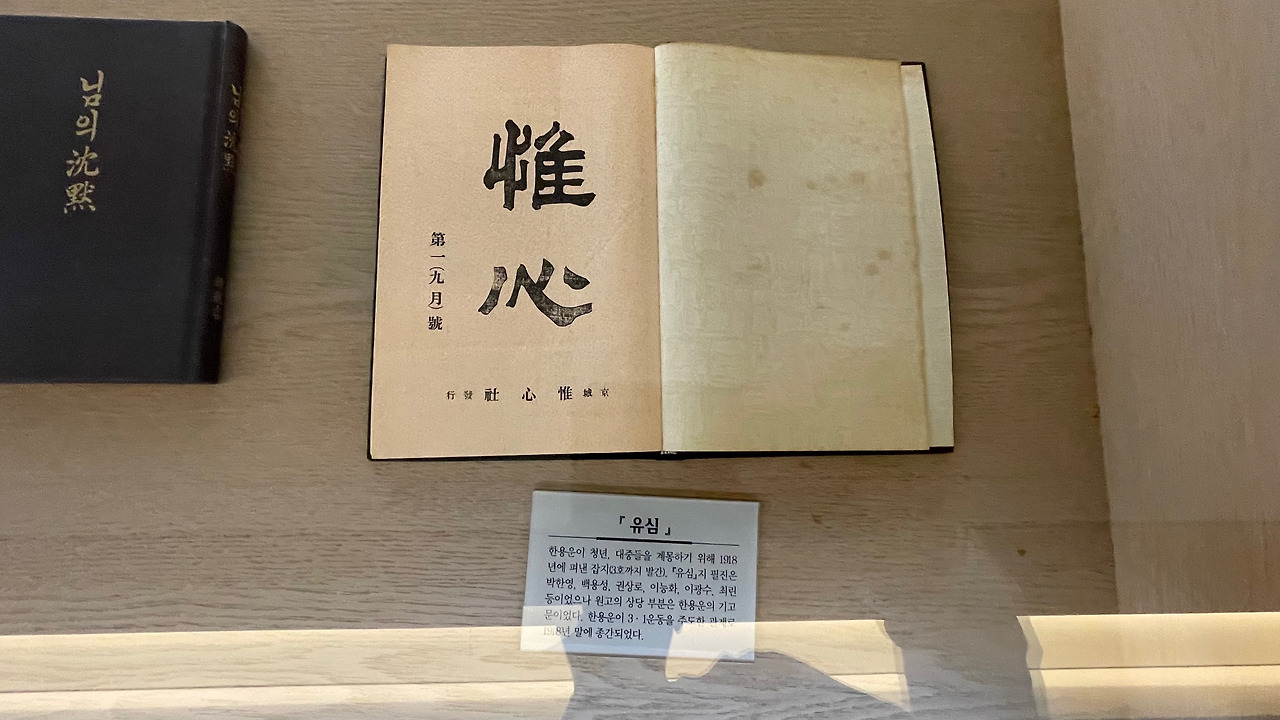 님의
沈
黙
님의 沈黙
惟
心
第一(九月)號
行發 社心惟 城京
『유심』
한용운이 청년, 대중들을 계몽하기 위해 1918
년에 펴낸 잡지(3호까지 발간). 『유심』지 필진은
박한영, 백용성, 권상로, 이능화, 이광수, 최린
등이었으나 원고의 상당 부분은 한용운의 기고
문이었다. 한용운이 3·1운동을 주도한 관계로
1918년 말에 종간되었다.